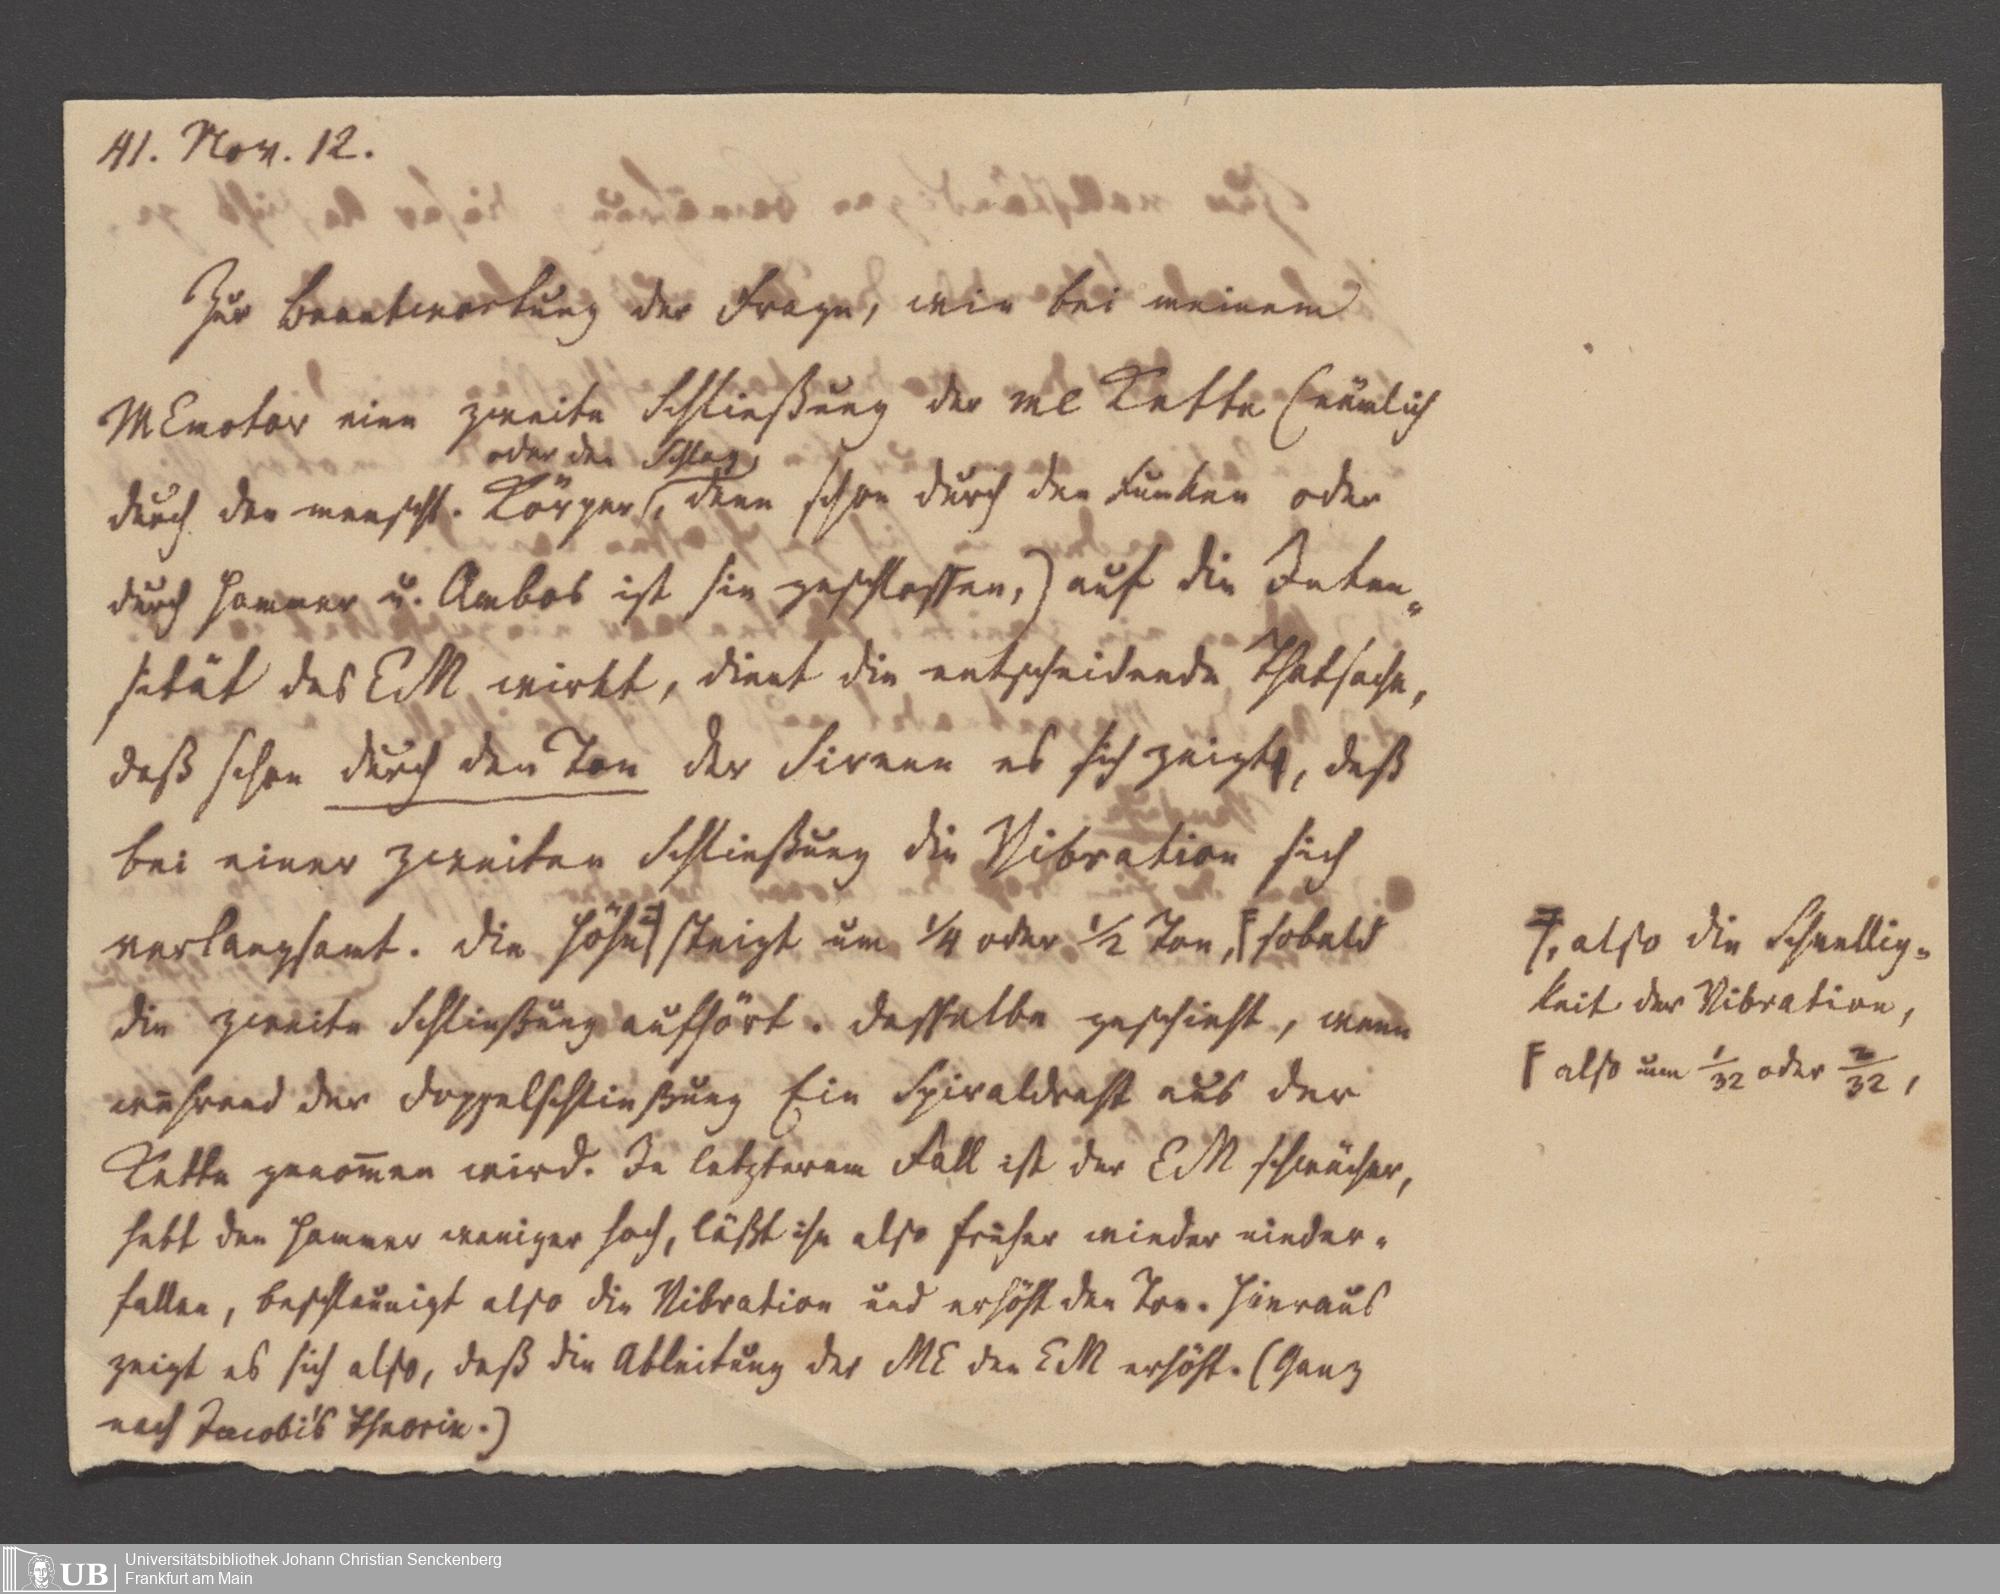 41. Nov. 12.
Zur Beantwortung der Frage, wie bei meinem
MEmotor eine zweite Schließung der ME Kette (nämlich
oder den Schlag
durch den menschl. Körper, denn schon durch den Funken oder
durch Hammer u. Ambos ist sie geschlossen,) auf die Inten-
sität des EM wirkt, dient die entscheidende Thatsache,
daß schon durch den Ton der Sirene es sich zeigt, daß
bei einer zweiten Schließung die Vibration sich
verlangsamt. Die Höhe steigt um 1/4 oder 1/2 Ton, sobald
die zweite Schließung aufhört. Dasselbe geschieht, wenn
während der Doppelschließung Ein Spiraldraht aus der
Kette genom̅en wird. In letzterem Fall ist der EM schwächer,
hebt den Hammer weniger hoch, läßt ihn also früher wieder nieder-
fallen, beschleunigt also die Vibration und erhöht den Ton. Hieraus
zeigt es sich also, daß die Ableitung der ME den EM erhöht. (Ganz
nach Jacobi's Theorie.)
, also die Schnellig-
keit der Vibration,
also um 1/32 oder 2/32,
UB
Universitätsbibliothek Johann Christian Senckenberg
Frankfurt am Main